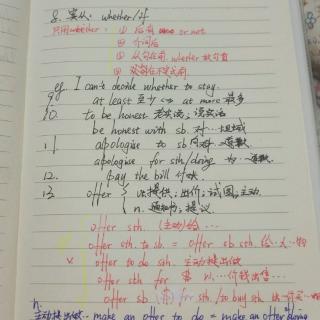 8. 宾从: whether/if
只用whether: ① 后有 or not
② 介词后
③ 从句在前, whether放句首
④ 动词不定式前
eg. I can't decide whether to stay.
9. at least 至少 at most 最多
10. to be honest 老实说; 说实话
be honest with sb. 对
11. apologise to sb 向
apologise for sth/doing 为
12. pay the bill 付
13. offer v. 提供; 出价; 试图; 主动
n. 通知书; 提议
offer sth. (主动)给…
offer sth. to sb. = offer sb. sth. 给
v. offer to do sth. 主动提出做
offer sth for 以…价钱出售…
offer sb for sth./to buy sth
n. 主动提出做 make an offer to do = make an offer of doing